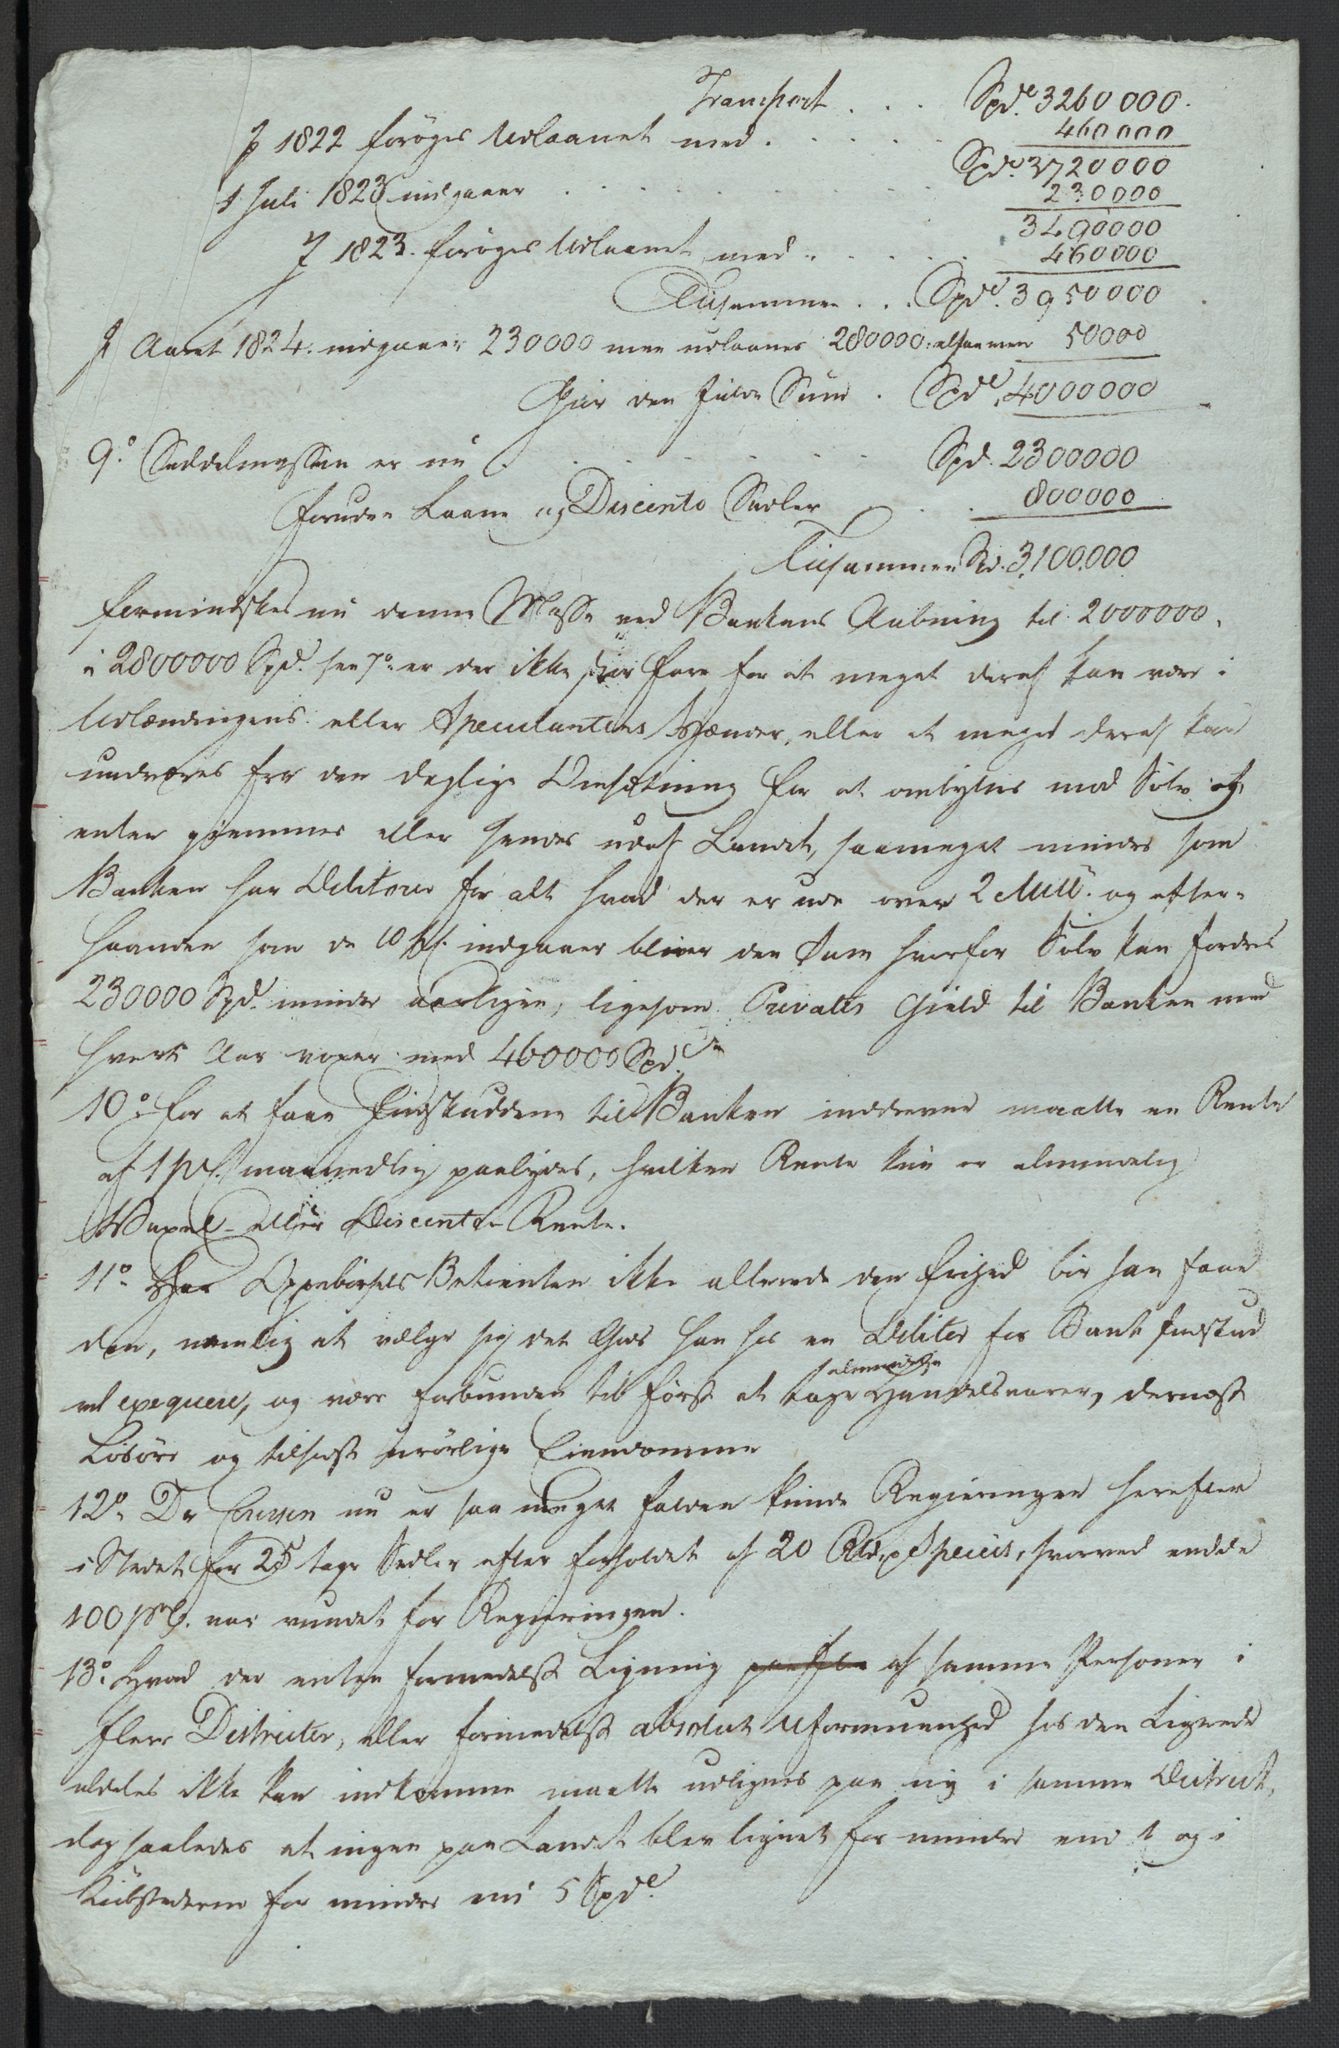 Transport . . . Spd. 3260 000.
I 1822 forøges Udlaanet med . . . . . 460000
Spd. 3720000
1 Juli 1823 indgaaer . . . . . 230000
3490000
I 1823. forøges Udlaanet med . . . . . 460000
Tilsammen . . . Spd. 3950000
I Aaret 1824. indgaaer 230000 men udlaanes 280000. altsaa mere 50000
Giør den fulde Sum . Spd. 4000000
9.° Seddelmassen er nu . . . . . Spd. 2300000
foruden Laane og Disconto Sedler . . 800000
Tilsammen Spd. 3,100,000
formindskes nu denne Masse ved Bankens Aabning til 2000000.
à 2800000 Spd. see 7° er der ikke stor Fare for at meget deraf kan være i
Udlændingens eller Speculantens Hænder, eller at meget deraf kan
undværes fra den daglige Omsætning for at ombyttes mod Sølv og
enten giemmes eller sendes ud af Landet, saameget mindre som
Banken har Debitorer for alt hvad der er ude over 2 Mill. og efter-
haanden som de 10 pC. indgaaer bliver den Sum hvorfor Sølv kan fordres
230000 Spd. mindre aarligen, ligesom Privates Gield til Banken med
hvert Aar voxer med 460000 Spd.
10° For at faae Indskuddene til Banken inddrevne maatte en Rente
af 1 pC. maanedlig paalydes, hvilken Rente kun er almindelig
Vexel- eller Disconto-Rente.
11° Har Oppebørsels Betienten ikke allerede den Frihed bør han faae
den, nemlig at vælge sig det Gods han hos en Debitor for Bank Indskud
vil exequere, og være forbunden til først at tage almindelige Handelsvarer, dernæst
Løsøre og tilsidst urørlige Eiendomme
12° Da Coursen nu er saa meget falden kunde Regieringen herefter
i Stedet for 25 tage Sedler efter Forholdet af 20 Rd. pr Species, hvorved endda
100 pC. var vundet for Regieringen.
13° Hvad der enten formedelst Ligning af samme Personer i
flere Districter, eller formedelst absolut Uformuenhed hos den Lignede
aldeles ikke kan indkomme maatte udlignes paa ny i samme District,
dog saaledes at ingen paa Landet blev lignet for mindre end 1 og i
Kiøbstæderne for mindre end 5 Spd.